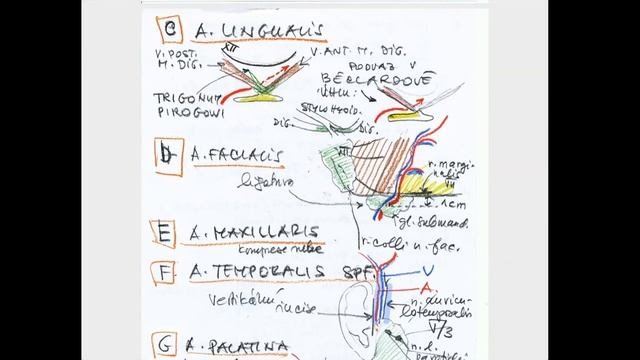 C A. LINGUALIS
XII
V. POST. M. DIG.
V. ANT. M. DIG.
PODVAZ V
BÉCLARDOVĚ
ÚHLU:
TRIGONUM
PIROGOWI
STYLOHYOID.
DIG. DIG.
D A. FACIALIS
XII
ligatura
r. margi-
nalis
VII
1cm
gl. submand.
r. colli n. fac.
E A. MAXILLARIS
komprese
F A. TEMPORALIS SPF.
V
A.
vertikální
incise
n. auricu-
lotemporalis
V/3
G A. PALATINA